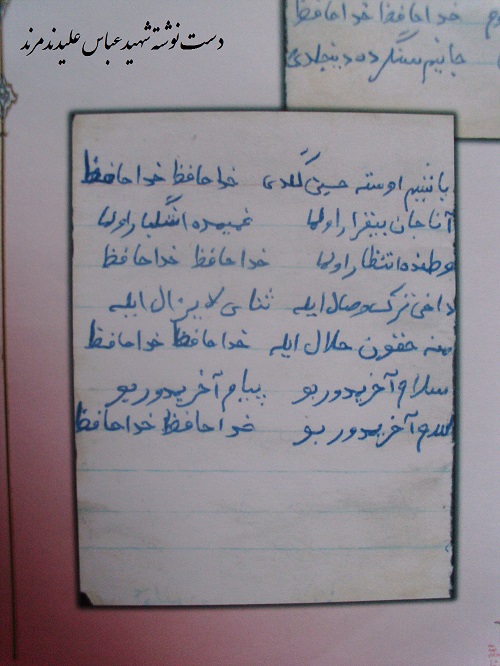 دست نوشته شهید عباس علیدند مرند
خداحافظ خداحافظ
جانیم سنگرده دینجلدی
یانینیم اوسته حسین گلدی خداحافظ خداحافظ
آنا جان بیقرار اولما غمیمده اشگبار اولما
وطنده انتظار اولما خداحافظ خداحافظ
داخی ترک وصال ایله ثنای لایزال ایله
منه حقون حلال ایله خداحافظ خداحافظ
سلام آخریمدور بو پیام آخریمدور بو
کلام آخریمدور بو خداحافظ خداحافظ